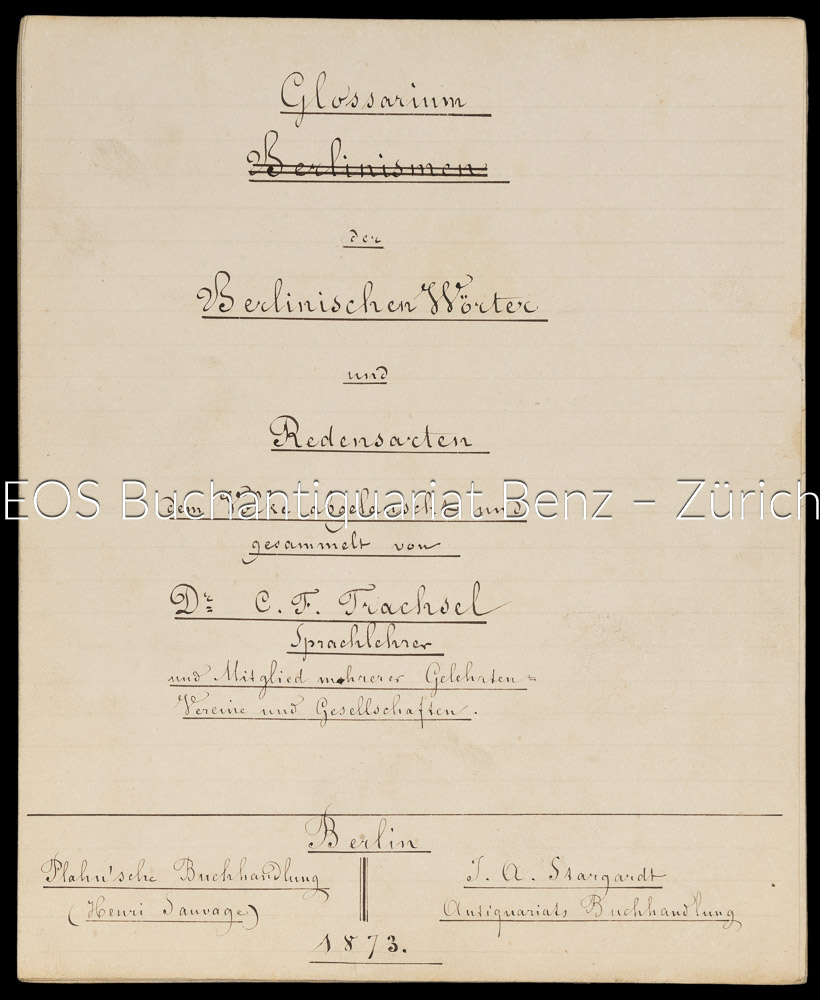 Glossarium
Berlinismen
der
Berlinischen Wörter
und
Redensarten
dem Volke abgelauscht und
EOS Buchantiquariat Benz – Zürich
gesammelt von
Dr. C. F. Trachsel
Sprachlehrer
und Mitglied mehrerer Gelehrten=
Vereine und Gesellschaften.
Berlin
Plahn'sche Buchhandlung
(Henri Sauvage)
J. A. Stargardt
Antiquariats Buchhandlung
1873.